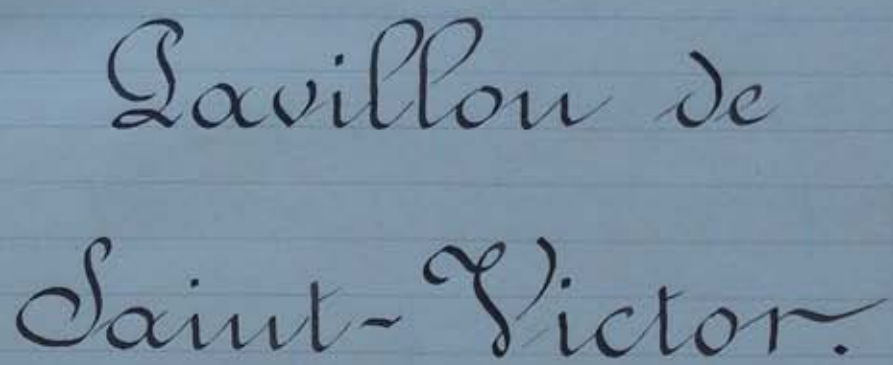 Pavillon de
Saint-Victor.